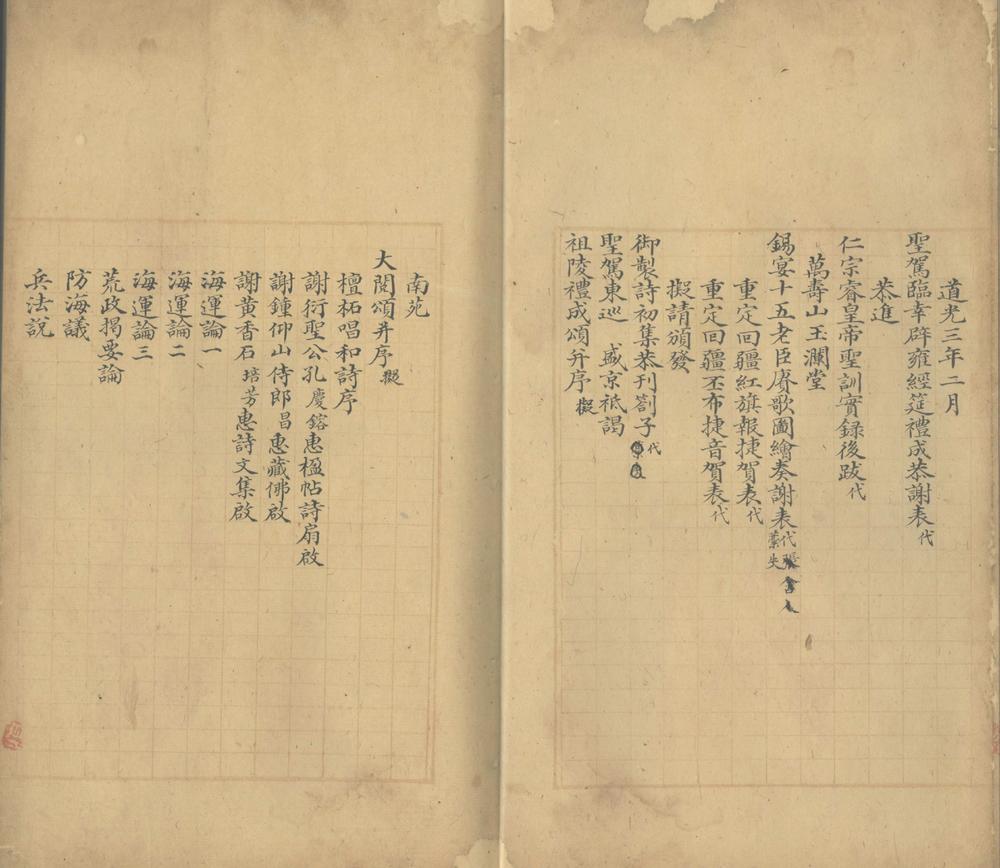 道光三年二月
聖駕臨幸辟雍經筵禮成恭謝表代
恭進
仁宗睿皇帝聖訓實録後跋代
萬壽山玉瀾堂
錫宴十五老臣賡歌圖繪奏謝表代張舍人藁失
重定回疆紅旗報捷賀表代
重定回疆丕布捷音賀表代
擬請頒發
御製詩初集恭刊劄子代
聖駕東巡 盛京祗謁
祖陵禮成頌并序擬
南苑
大閱頌并序擬
檀柘唱和詩序
謝衍聖公孔慶鎔惠楹帖詩扇啟
謝鍾仰山侍郎昌惠藏佛啟
謝黃香石培芳惠詩文集啟
海運論一
海運論二
海運論三
荒政揭要論
防海議
兵法説